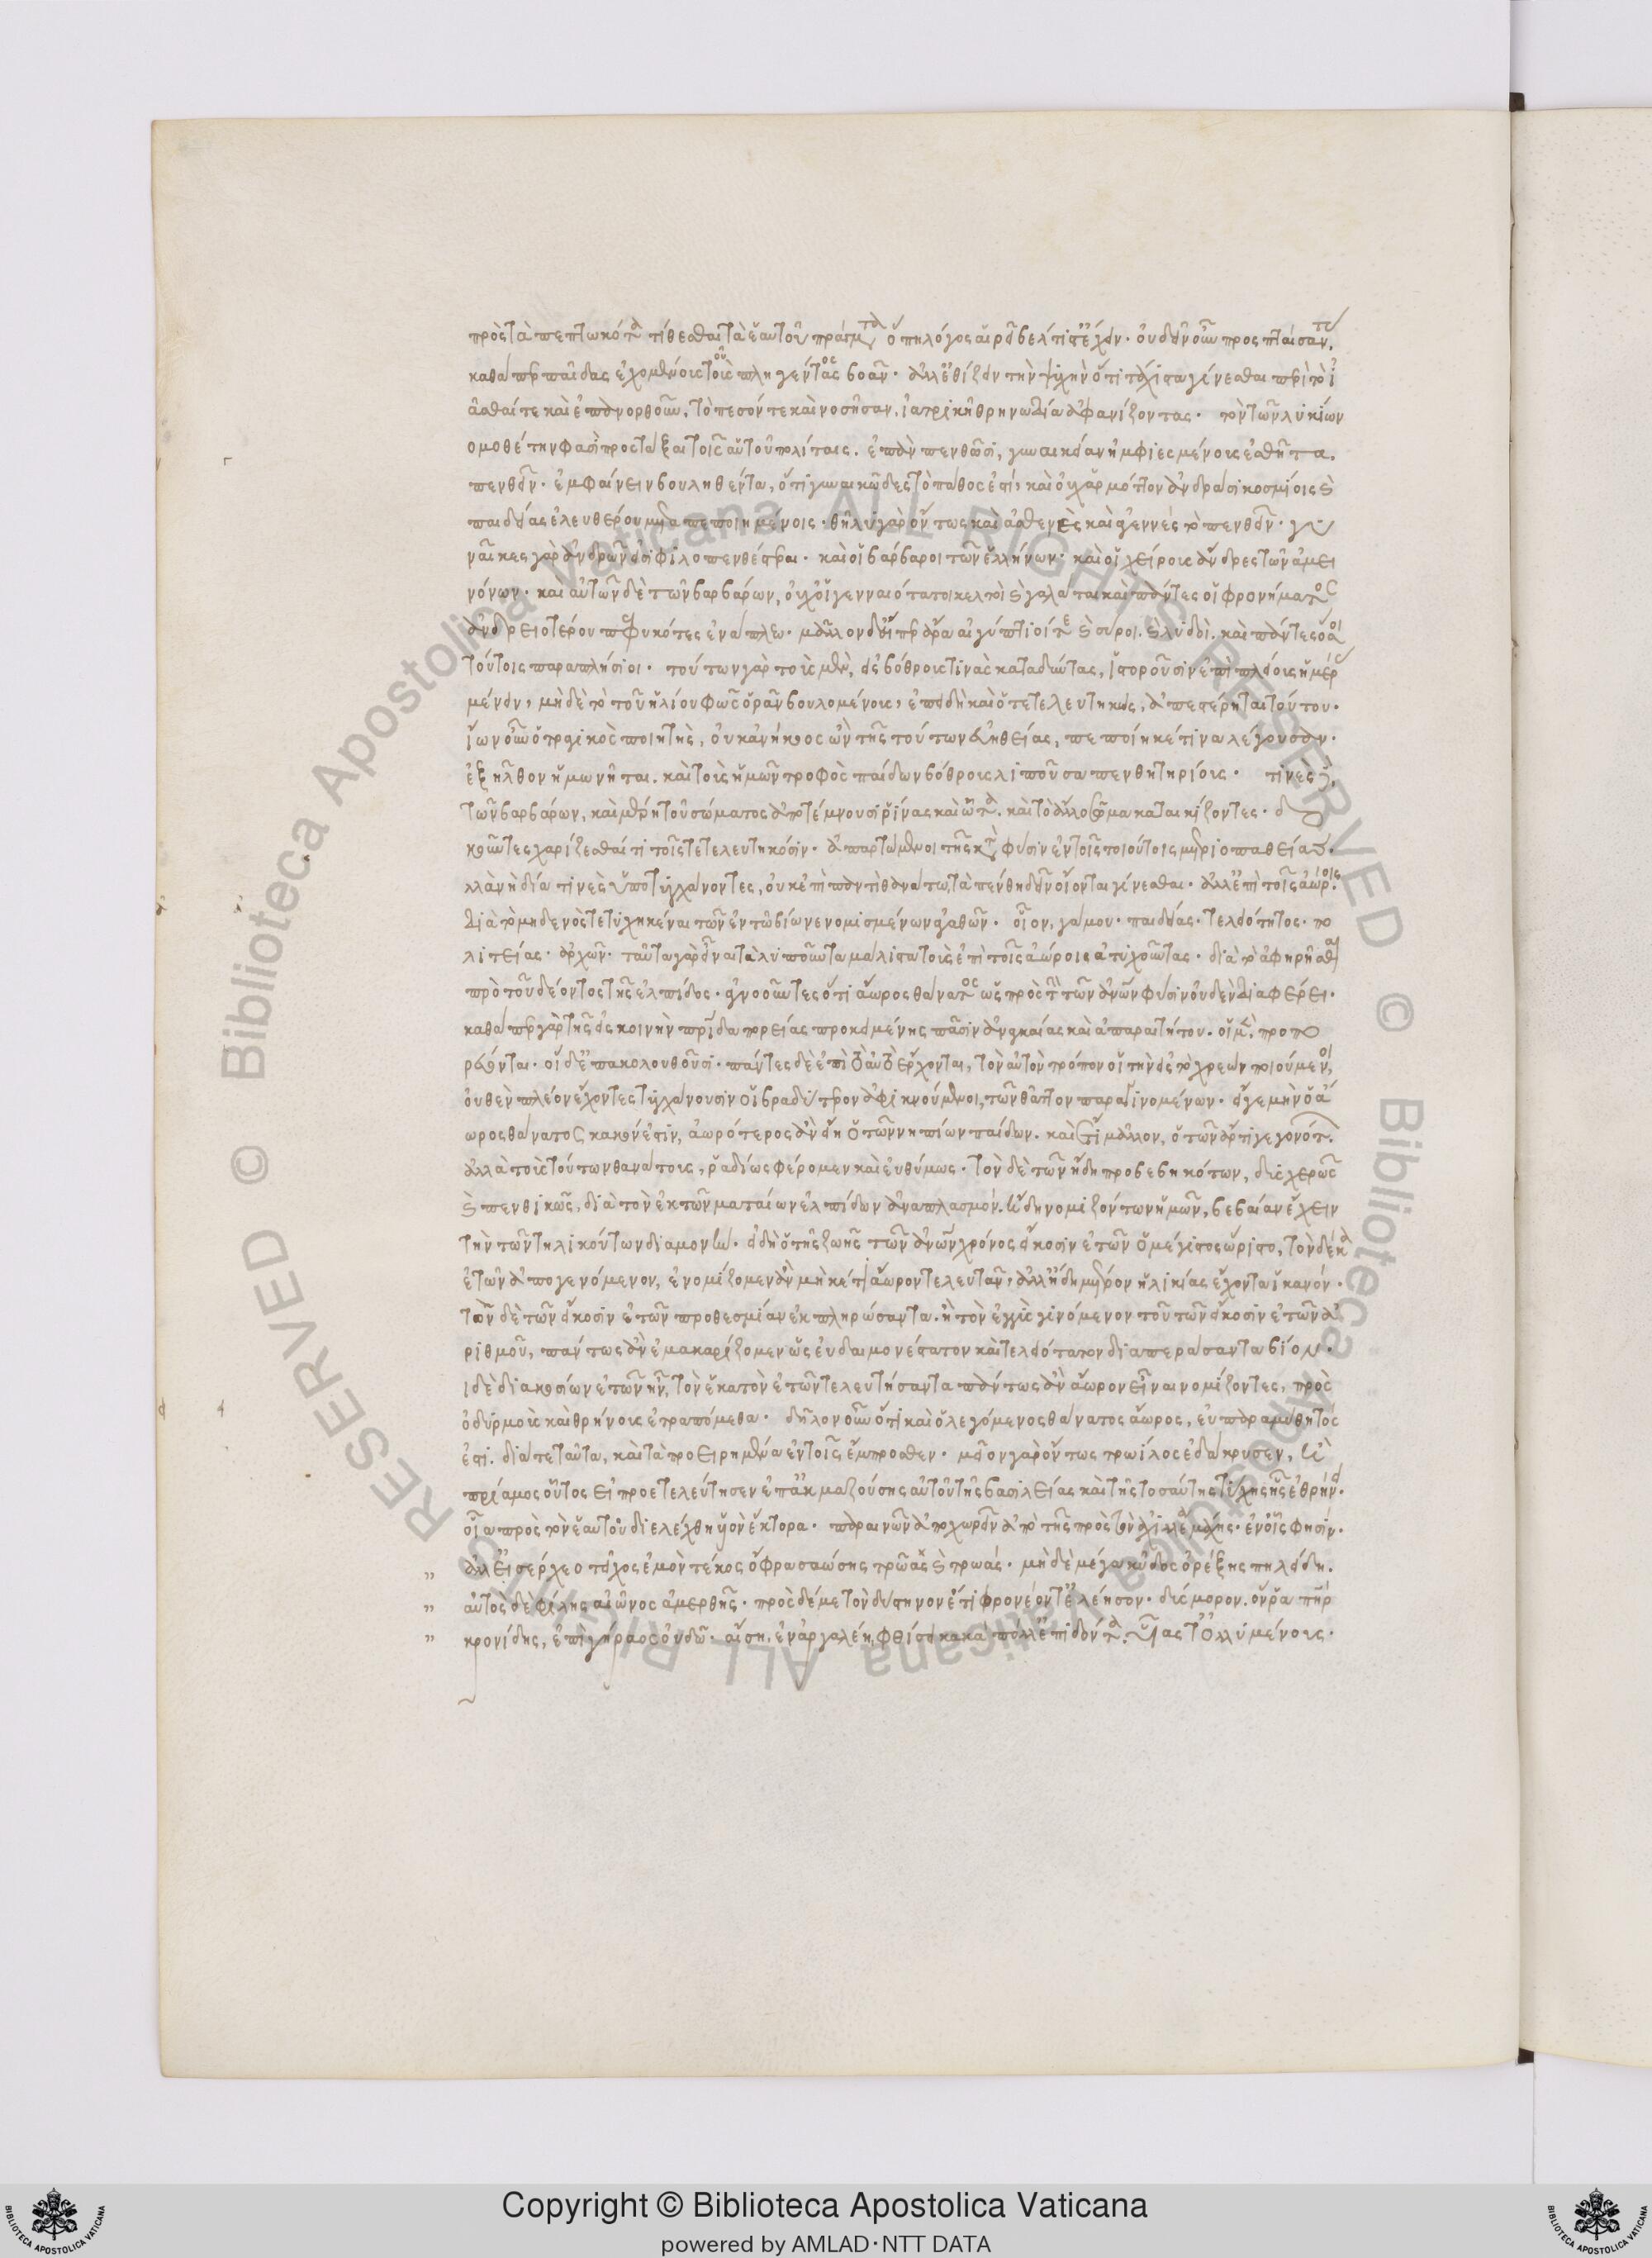 πρὸς τὰ πεπτωκότα τίθεσθαι τὰ ἑαυτοῦ πράγματα ὅπη λόγος αἱρεῖ βέλτιστ' ἔχειν. οὐ δεῖν οὖν προσπταίσαντας
καθάπερ παῖδας ἐχομένους τοῦ πληγέντος βοᾶν. ἀλλ' ἐθίζειν τὴν ψυχὴν ὅτι τάχιστα γίνεσθαι περὶ τὸ ἰ
ᾶσθαί τε καὶ ἐπανορθοῦν, τὸ πεσόν τε καὶ νοσῆσαν, ἰατρικῇ θρηνωδίαν ἀφανίζοντας. τὸν τῶν λυκίων
νομοθέτην φασὶ προστάξαι τοῖς αὑτοῦ πολίταις. ἐπὰν πενθῶσι, γυναικείαν ἠμφιεσμένους ἐσθῆτα,
πενθεῖν. ἐμφαίνειν βουληθέντα, ὅτι γυναικῶδες τὸ πάθος ἐστὶ, καὶ οὐχ ἁρμόττον ἀνδράσι κοσμίοις καὶ
παιδείας ἐλευθερίου μεταπεποιημένοις. θῆλυ γὰρ ὄντως καὶ ἀσθενὲς καὶ ἀγεννὲς τὸ πενθεῖν. γυ
ναῖκες γὰρ ἀνδρῶν εἰσι φιλοπενθέστεραι. καὶ οἱ βάρβαροι τῶν ἑλλήνων. καὶ οἱ χείρους ἄνδρες τῶν ἀμει
νόνων. καὶ αὐτῶν δὲ τῶν βαρβάρων, οὐχ οἱ γενναιότατοι κελτοὶ καὶ γαλάται καὶ πάντες οἱ φρονήματος
ἀνδρειοτέρου πεφυκότες ἔμπλεω. μᾶλλον δ' εἴπερ ἄρα αἰγύπτιοί τε καὶ σύροι. καὶ λυδοὶ. καὶ πάντες ὅσοι
τούτοις παραπλήσιοι. τούτων γὰρ τοὺς μὲν, εἰς βόθρους τινὰς καταδύντας, ἱστοροῦσιν ἐπὶ πλείους ἡμέρας
μένειν, μηδὲ τὸ τοῦ ἡλίου φῶς ὁρᾶν βουλομένους, ἐπειδὴ καὶ ὁ τετελευτηκὼς, ἀπεστέρηται τούτου.
ἴων οὖν ὁ τραγικὸς ποιητὴς, οὐκ ἀνήκοος ὢν τῆς τούτων εὐηθείας, πεποίηκέ τινα λέγουσαν.
ἐξῆλθον ὑμῶν ἥται. καὶ τοὺς ἡμῶν τροφὸς παίδων βόθρους λιποῦσα πενθητηρίους. τινὲς δὲ
τῶν βαρβάρων, καὶ μέρη τοῦ σώματος ἀποτέμνουσι ῥίνας καὶ ὦτα. καὶ τὸ ἄλλο σῶμα καταικίζοντες. δο
κοῦντες χαρίζεσθαί τι τοῖς τετελευτηκόσιν. ἀπαρτώμενοι τῆς κατὰ φύσιν ἐν τοῖς τοιούτοις μετριοπαθείας.
ἀλλὰ νὴ δία τινὲς ὑποτυγχάνοντες, οὐκ ἐπὶ παντὶ θανάτω, τὰ πένθη δεῖν οἴονται γίνεσθαι. ἀλλ' ἐπὶ τοῖς ἀώροις.
διὰ τὸ μηδενὸς τετυχηκέναι τῶν ἐν τῶ βίω νενομισμένων ἀγαθῶν. οἷον, γάμου. παιδείας. τελειότητος. πο
λιτείας. ἀρχῶν. ταῦτα γὰρ εἶναι τὰ λυποῦντα μάλιστα τοὺς ἐπὶ τοῖς ἀώροις ἀτυχοῦντας. διὰ τὸ ἀφηρῆσθαι
πρὸ τοῦ δέοντος τῆς ἐλπίδος. ἀγνοοῦντες ὅτι ἄωρος θάνατος ὡς πρὸς τὴν τῶν ἀνων φύσιν οὐδὲν διαφέρει.
καθάπερ γὰρ τῆς εἰς κοινὴν πρίδα πορείας προκειμένης πᾶσιν ἀναγκαίας καὶ ἀπαραιτήτου. οἱ μὲν προπο
ρεύονται. οἱ δ' ἐπακολουθοῦσι. πάντες δὲ ἐπὶ ταὐτὸ ἔρχονται, τὸν αὐτὸν τρόπον οἱ τὴν εἰς τὸ χρεὼν ποιούμενοι
οὐθὲν πλέον ἔχοντες τυγχάνουσιν οἱ βραδύτερον ἀφικνούμενοι, τῶν θᾶττον παραγινομένων. εἴ γε μὴν ὁ ἄ
ωρος θάνατος κακόν ἐστιν, ἀωρότερος ἂν εἴη ὁ τῶν νηπίων παίδων. καὶ ἔτι μᾶλλον, ὁ τῶν ἄρτι γεγονότων.
ἀλλὰ τοὺς τούτων θανάτους, ῥαδίως φέρομεν καὶ εὐθύμως. τὸν δὲ τῶν ἤδη προβεβηκότων, δυσχερῶς
καὶ πενθικῶς, διὰ τὸν ἐκ τῶν ματαίων ἐλπίδων ἀναπλασμόν. ἤδη νομιζόντων ἡμῶν, βεβαίαν ἔχειν
τὴν τῶν τηλικούτων διαμονήν. εἰ δὴ ὁ τῆς ζωῆς τῶν ἀνων χρόνος εἴκοσιν ἐτῶν ὁ μέγιστος ὥριστο, τὸν δέκα
ἐτῶν ἀπογενόμενον, ἐνομίζομεν ἂν μηκέτ' ἄωρον τελευτᾶν, ἀλλ' ἤδη μέτρον ἡλικίας ἔχοντα ἱκανόν.
τὸν δὲ τῶν εἴκοσιν ἐτῶν προθεσμίαν ἐκπληρώσαντα. ἢ τὸν ἐγγὺς γινόμενον τοῦ τῶν εἴκοσιν ἐτῶν ἀ
ριθμοῦ, πάντως ἂν ἐμακαρίζομεν ὡς εὐδαιμονέστατον καὶ τελειότατον διαπεράσαντα βίον.
εἰ δὲ διακοσίων ἐτῶν ἦν, τὸν ἑκατὸν ἐτῶν τελευτήσαντα πάντως ἂν ἄωρον εἶναι νομίζοντες, πρὸς
ὀδυρμοὺς καὶ θρήνους ἐτραπόμεθα. δῆλον οὖν ὅτι καὶ ὁ λεγόμενος θάνατος ἄωρος, εὐπαραμύθητός
ἐστι. διά τε ταῦτα, καὶ τὰ προειρημένα ἐν τοῖς ἔμπροσθεν. μεῖον γὰρ ὄντως τρωίλος ἐδάκρυσεν, ἢ
πρίαμος οὗτος εἰ προετελεύτησεν ἔτ' ἀκμαζούσης αὐτοῦ τῆς βασιλείας καὶ τῆς τοσαύτης τύχης ἧς ἐθρήνει.
οἷα πρὸς τὸν ἑαυτοῦ διελέχθη υἱὸν ἕκτορα. παραινῶν ἀποχωρεῖν ἀπὸ τῆς πρὸς τὸν ἀχιλλέα μάχης. ἐν οἷς φησὶν.
" ἀλλ' εἰσέρχεο τεῖχος ἐμὸν τέκος ὄφρα σαώσης τρῶας καὶ τρωάς. μὴ δὲ μέγα κῦδος ὀρέξης πηλείδη.
" αὐτὸς δὲ φίλης αἰῶνος ἀμερθῆς. πρὸς δέ με τὸν δύστηνον ἔτι φρονέοντ' ἐλέησον. δύσμορον. ὅν ῥα πὴρ
" κρονίδης, ἐπὶ γήραος οὐδῶ. αἴση, ἐν ἀργαλέῃ, φθίσει κακὰ πόλλ' ἐπιδόντα. υἷάς τ' ὀλλυμένους.
© Biblioteca Apostolica Vaticana ALL RIGHTS RESERVED © Biblioteca Apostolica Vaticana ALL RIGHTS RESERVED
Copyright © Biblioteca Apostolica Vaticana
powered by AMLAD·NTT DATA
BIBLIOTECA APOSTOLICA VATICANA
BIBLIOTECA APOSTOLICA VATICANA